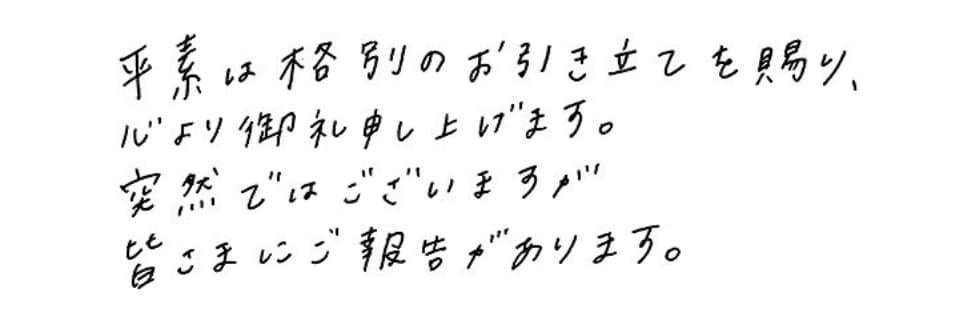 平素は格別のお引き立てを賜り、
心より御礼申し上げます。
突然ではございますが
皆さまにご報告があります。